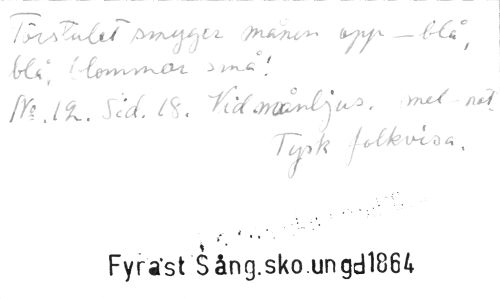 Förstulet smyger månen opp – blå,
blå, blommor små!
No. 12. Sid. 18. Vid månljus. mel-not.
Tysk folkvisa.
Fyrast Sång.sko.ungd1864